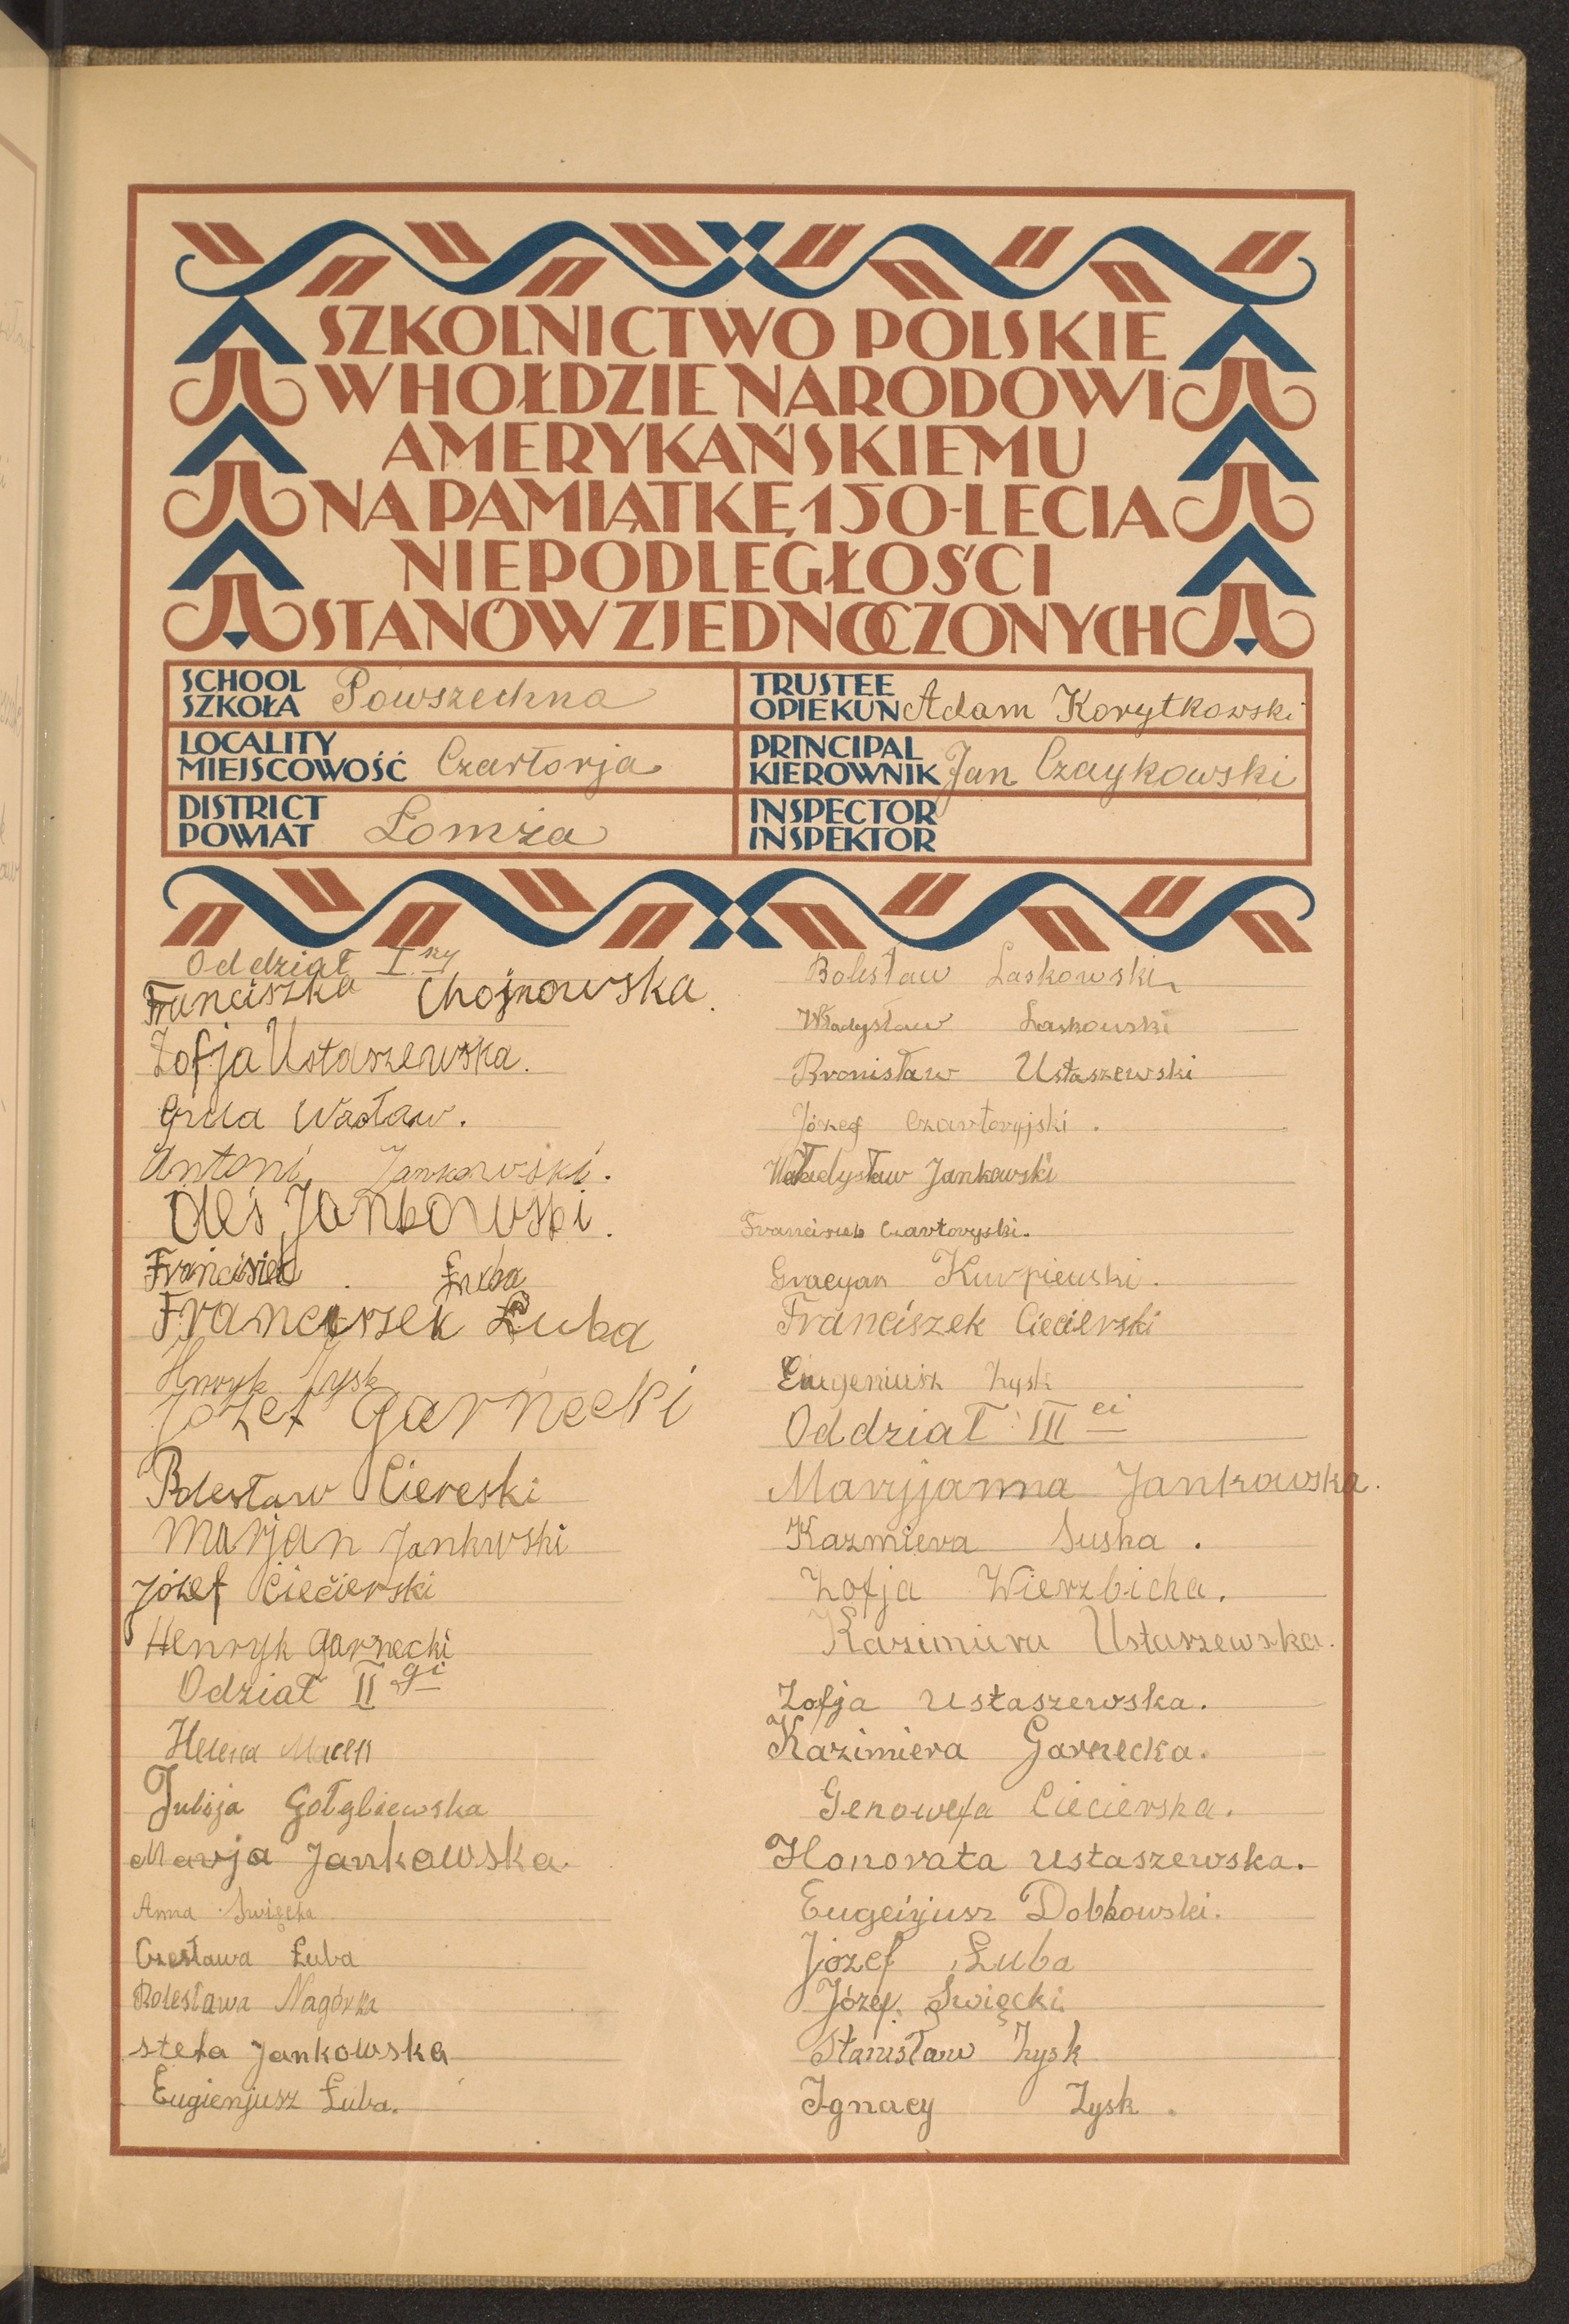 SZKOLNICTWO POLSKIE
W HOŁDZIE NARODOWI
AMERYKAŃSKIEMU
NA PAMIĄTKĘ 150-LECIA
NIEPODLEGŁOŚCI
STANÓW ZJEDNOCZONYCH
SCHOOL
SZKOŁA Powszechna
TRUSTEE
OPIEKUN Adam Korytkowski
LOCALITY
MIEJSCOWOŚĆ Czartorja
PRINCIPAL
KIEROWNIK Jan Czaykowski
DISTRICT
POWIAT Łomża
INSPECTOR
INSPEKTOR
Oddział I szy
Franciszka Chojnowska.
Zofja Ustaszewska.
Grua Wacław.
Antoni Jankowski.
Oleś Jankowski.
Francisiek Łuba
Franciszek Łuba
Henryk Zysk
Józef Garnecki
Bolesław Ciereski
Marjan Jankwski
Józef Ciecierski
Henryk Garnecki
Odział II gi
Helena Macek
Julija Gołgbiewska
Marja Jankowska.
Anna Święcka
Czesława Łuba
Bolesława Nagórka
stefa Jankowska
Eugienjusz Łuba.
Bolesław Laskowski
Władysław Laskowski
Bronisław Ustaszewski
Józef Czartoryjski.
Władysław Jankowski
Franciszek Czartoryski.
Gracyan Kurpiewski.
Franciszek Ciecierski
Eugeniusz Zysk
Oddział III ei
Maryjanna Jankowska.
Kazmiera Suska.
Zofja Wierzbicka.
Kazimiera Ustaszewska.
Zofja Ustaszewska.
Kazimiera Garnecka.
Genowefa Ciecierska.
Honorata Ustaszewska.
Eugeijusz Dobkowski.
Józef Łuba
Józef Święcki
Stanisław Zysk
Ignacy Zysk.